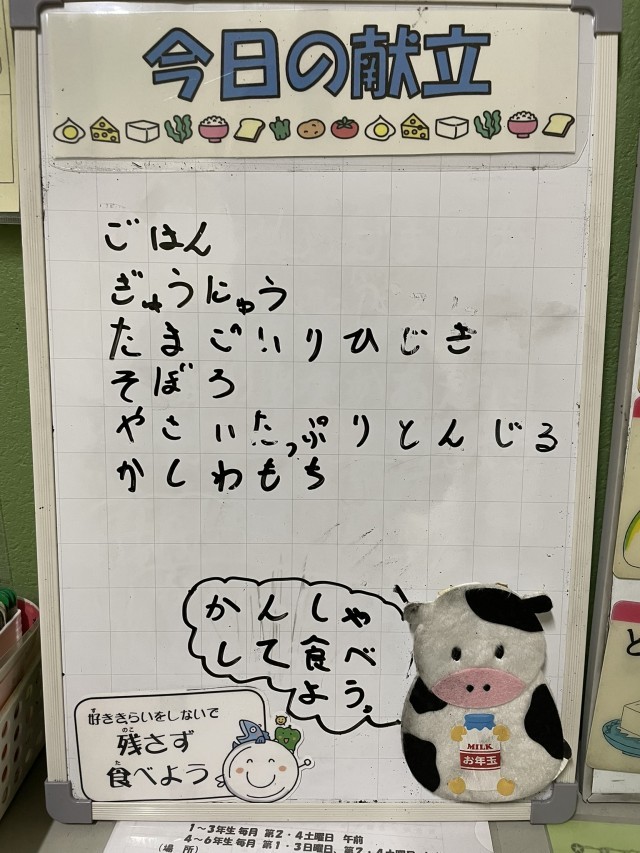 今日の献立
ごはん
ぎゅうにゅう
たまごいりひじき
そぼろ
やさいたっぷりとんじる
かしわもち
かんしゃ
して食べ
よう。
好ききらいをしないで
残さず
食べよう
MILK
お年玉
1～3年生 毎月 第2・4土曜日 午前
4～6年生 毎月 第1・3日曜日、第2・4土曜日
（場 所）
と